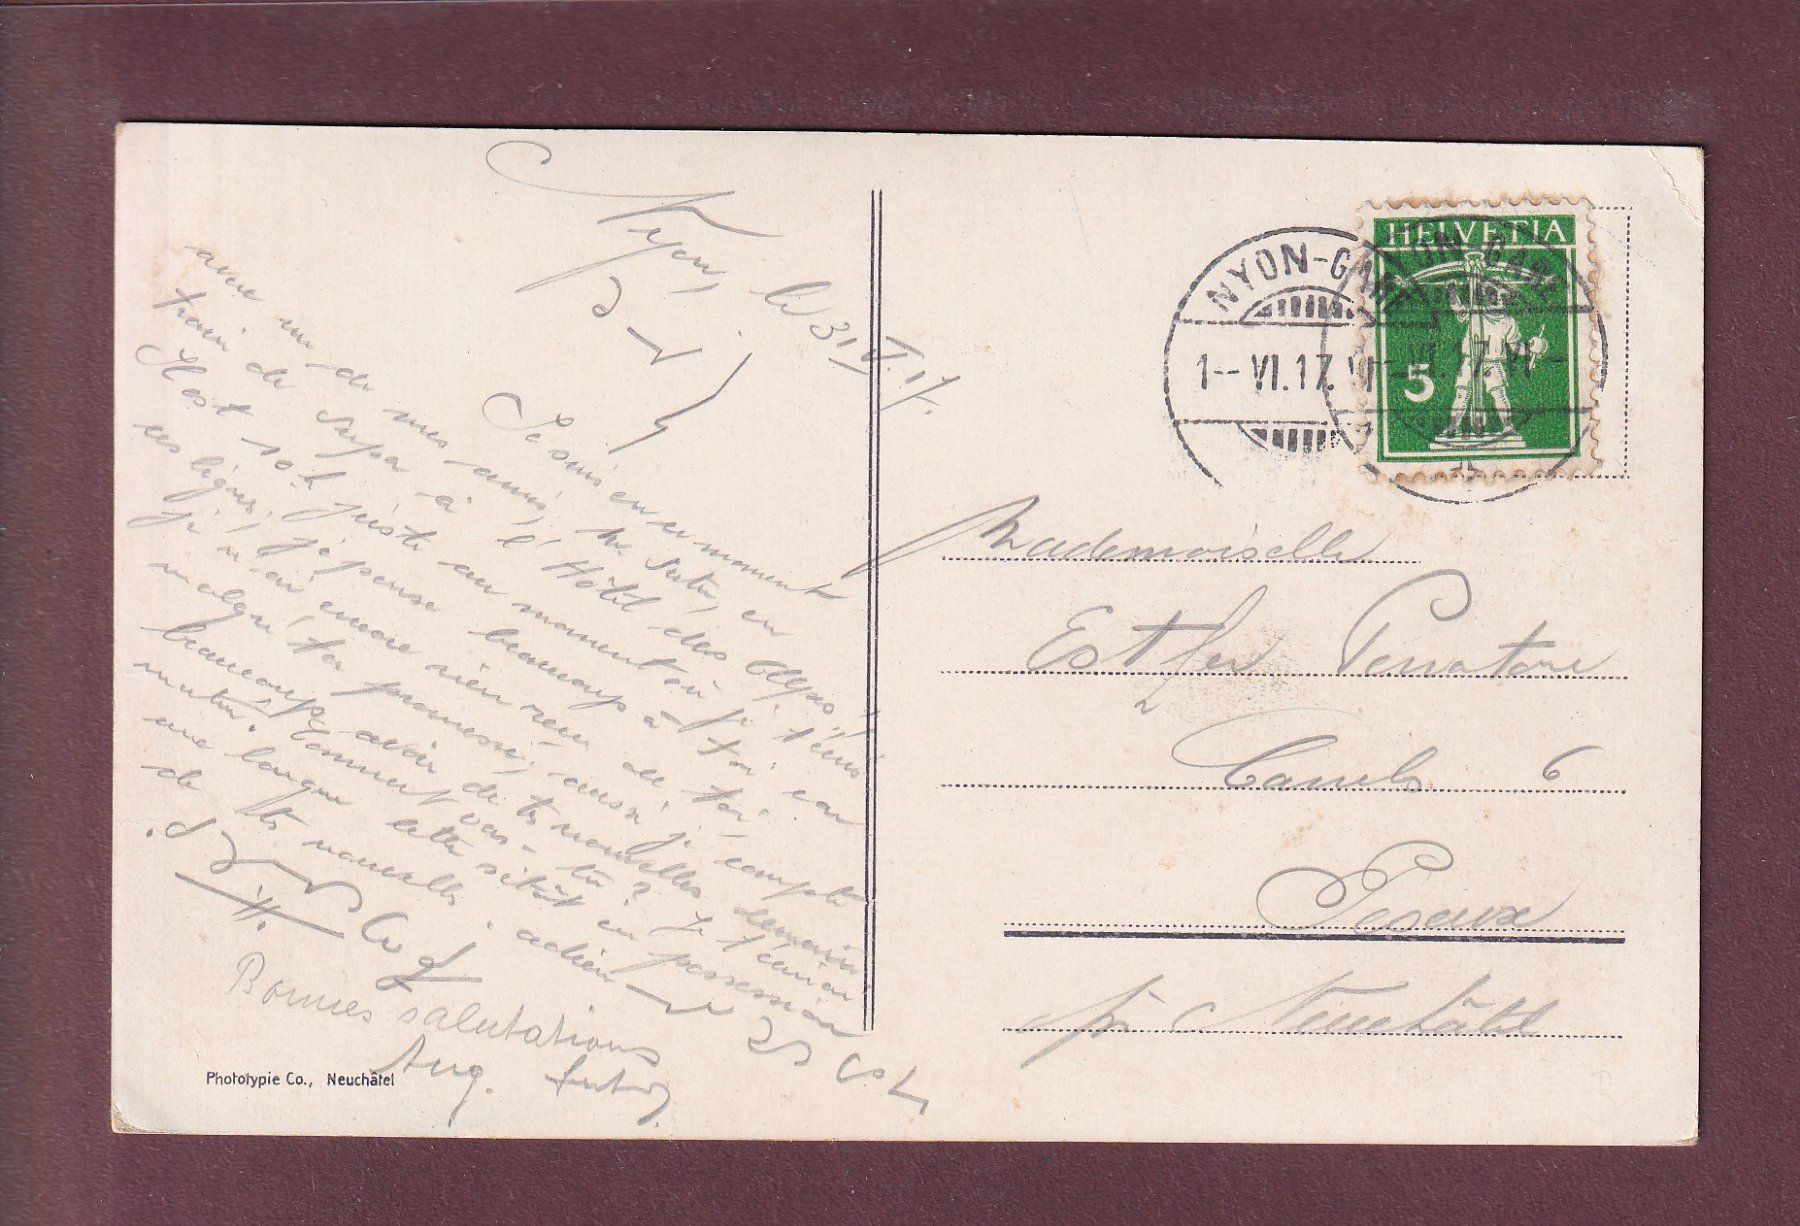 Nyon, le 31 V. 17.
Je suis en ce moment
avec un de mes amis, Mr. Suter, en
train de à l'Hôtel des Alpes,
Il est 10 h juste au moment où je t'écris
ces lignes, je pense beaucoup à toi car
je n'ai encore rien reçu de toi,
malgré ta promesse, aussi je compte
beaucoup avoir de tes nouvelles demain
matin. Comment vas-tu? Je t'enverrai
une longue lettre sitôt en possession
de tes nouvelles. adieu
Bonnes salutations
Aug. Suter
Phototypie Co., Neuchâtel
HELVETIA
5
NYON-GARE
1-- VI. 17. VI--
NYON-GARE
1-- VI. 17. VI--
Mademoiselle
Esther
Carrels 6
Peseux
pr Neuchâtel